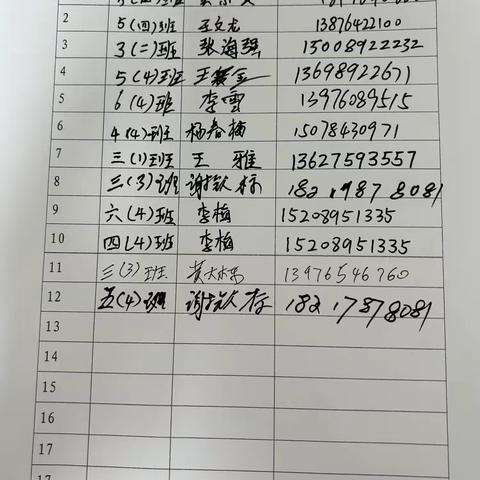 2 5(四)班 王文龙 13876422100
3 3(二)班 张海强 15008922232
4 5(4)班 王 13698922671
5 6(4)班 李雪 13976089515
6 4(4)班 杨春梅 15078430971
7 三(1)班 王雅 13627593557
8 三(3)班 谢 标 182 1987 8081
9 六(4)班 李梅 15208951335
10 四(4)班 李梅 15208951335
11 三(3)班 黄 13976546760
12 五(4)班 谢 标 182 1787 8081
13
14
15
16
17
17